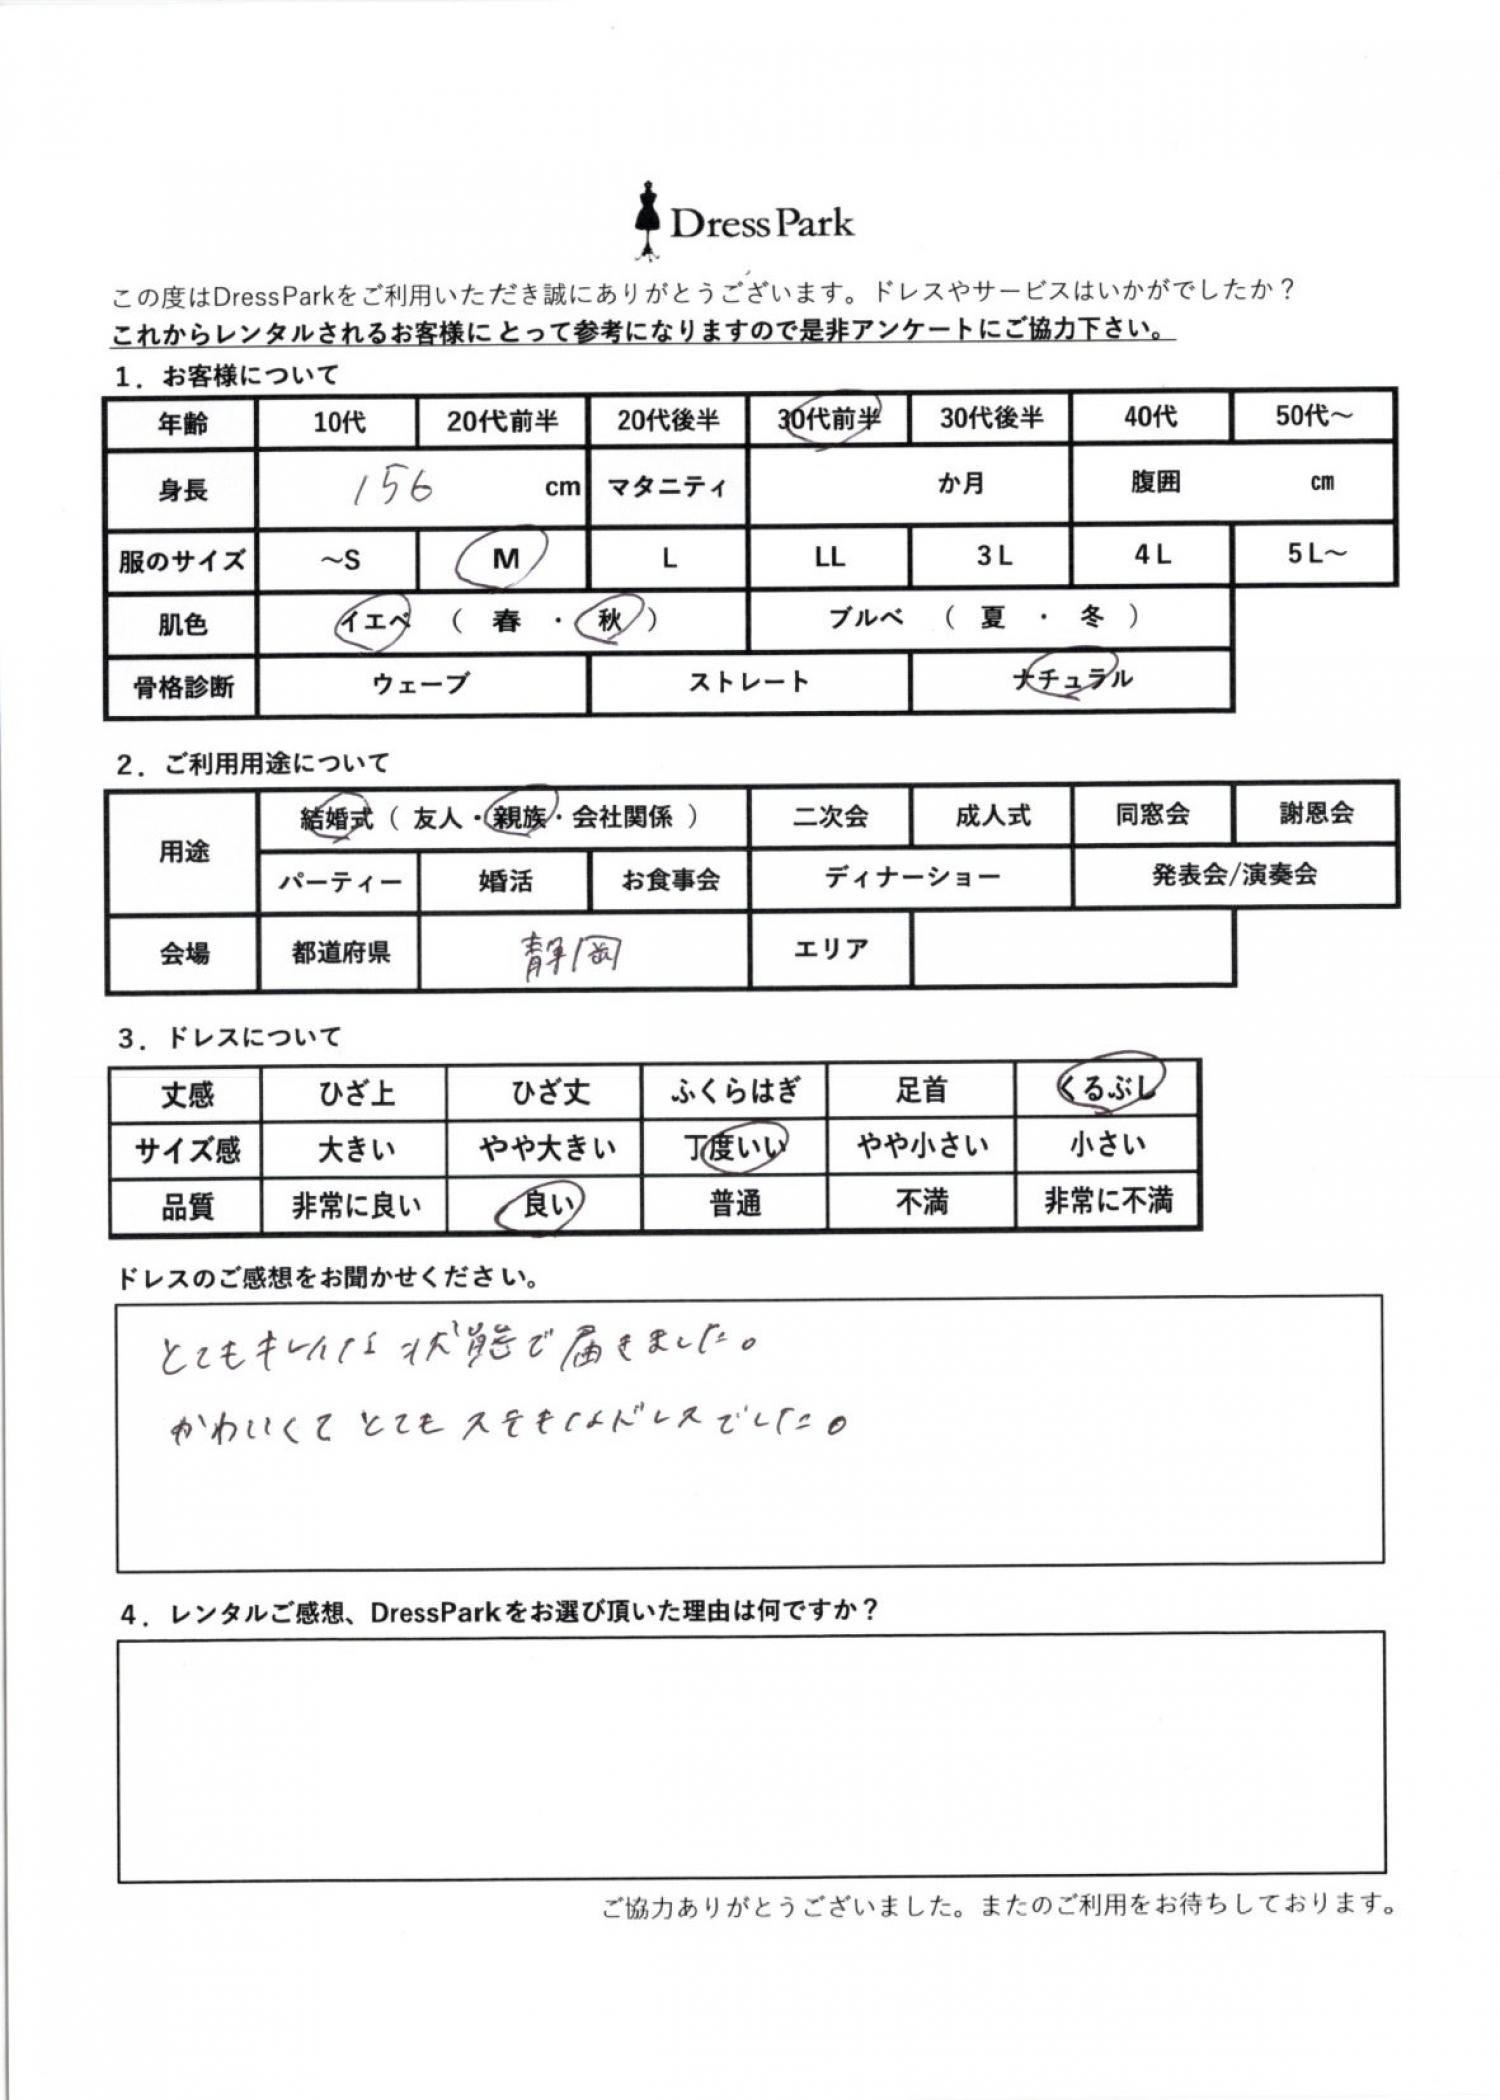 Dress Park
この度はDressParkをご利用いただき誠にありがとうございます。ドレスやサービスはいかがでしたか？
これからレンタルされるお客様にとって参考になりますので是非アンケートにご協力下さい。
1．お客様について
年齢 10代 20代前半 20代後半 30代前半 30代後半 40代 50代～
身長 156 cm マタニティ か月 腹囲 cm
服のサイズ ～S M L LL 3L 4L 5L～
肌色 イエベ （ 春 ・ 秋 ） ブルベ （ 夏 ・ 冬 ）
骨格診断 ウェーブ ストレート ナチュラル
2．ご利用用途について
用途 結婚式（ 友人・親族・会社関係 ） 二次会 成人式 同窓会 謝恩会
パーティー 婚活 お食事会 ディナーショー 発表会/演奏会
会場 都道府県 静岡 エリア
3．ドレスについて
丈感 ひざ上 ひざ丈 ふくらはぎ 足首 くるぶし
サイズ感 大きい やや大きい 丁度いい やや小さい 小さい
品質 非常に良い 良い 普通 不満 非常に不満
ドレスのご感想をお聞かせください。
とてもキレイな状態で届きました。
かわいくてとてもステキなドレスでした。
4．レンタルご感想、DressParkをお選び頂いた理由は何ですか？
ご協力ありがとうございました。またのご利用をお待ちしております。